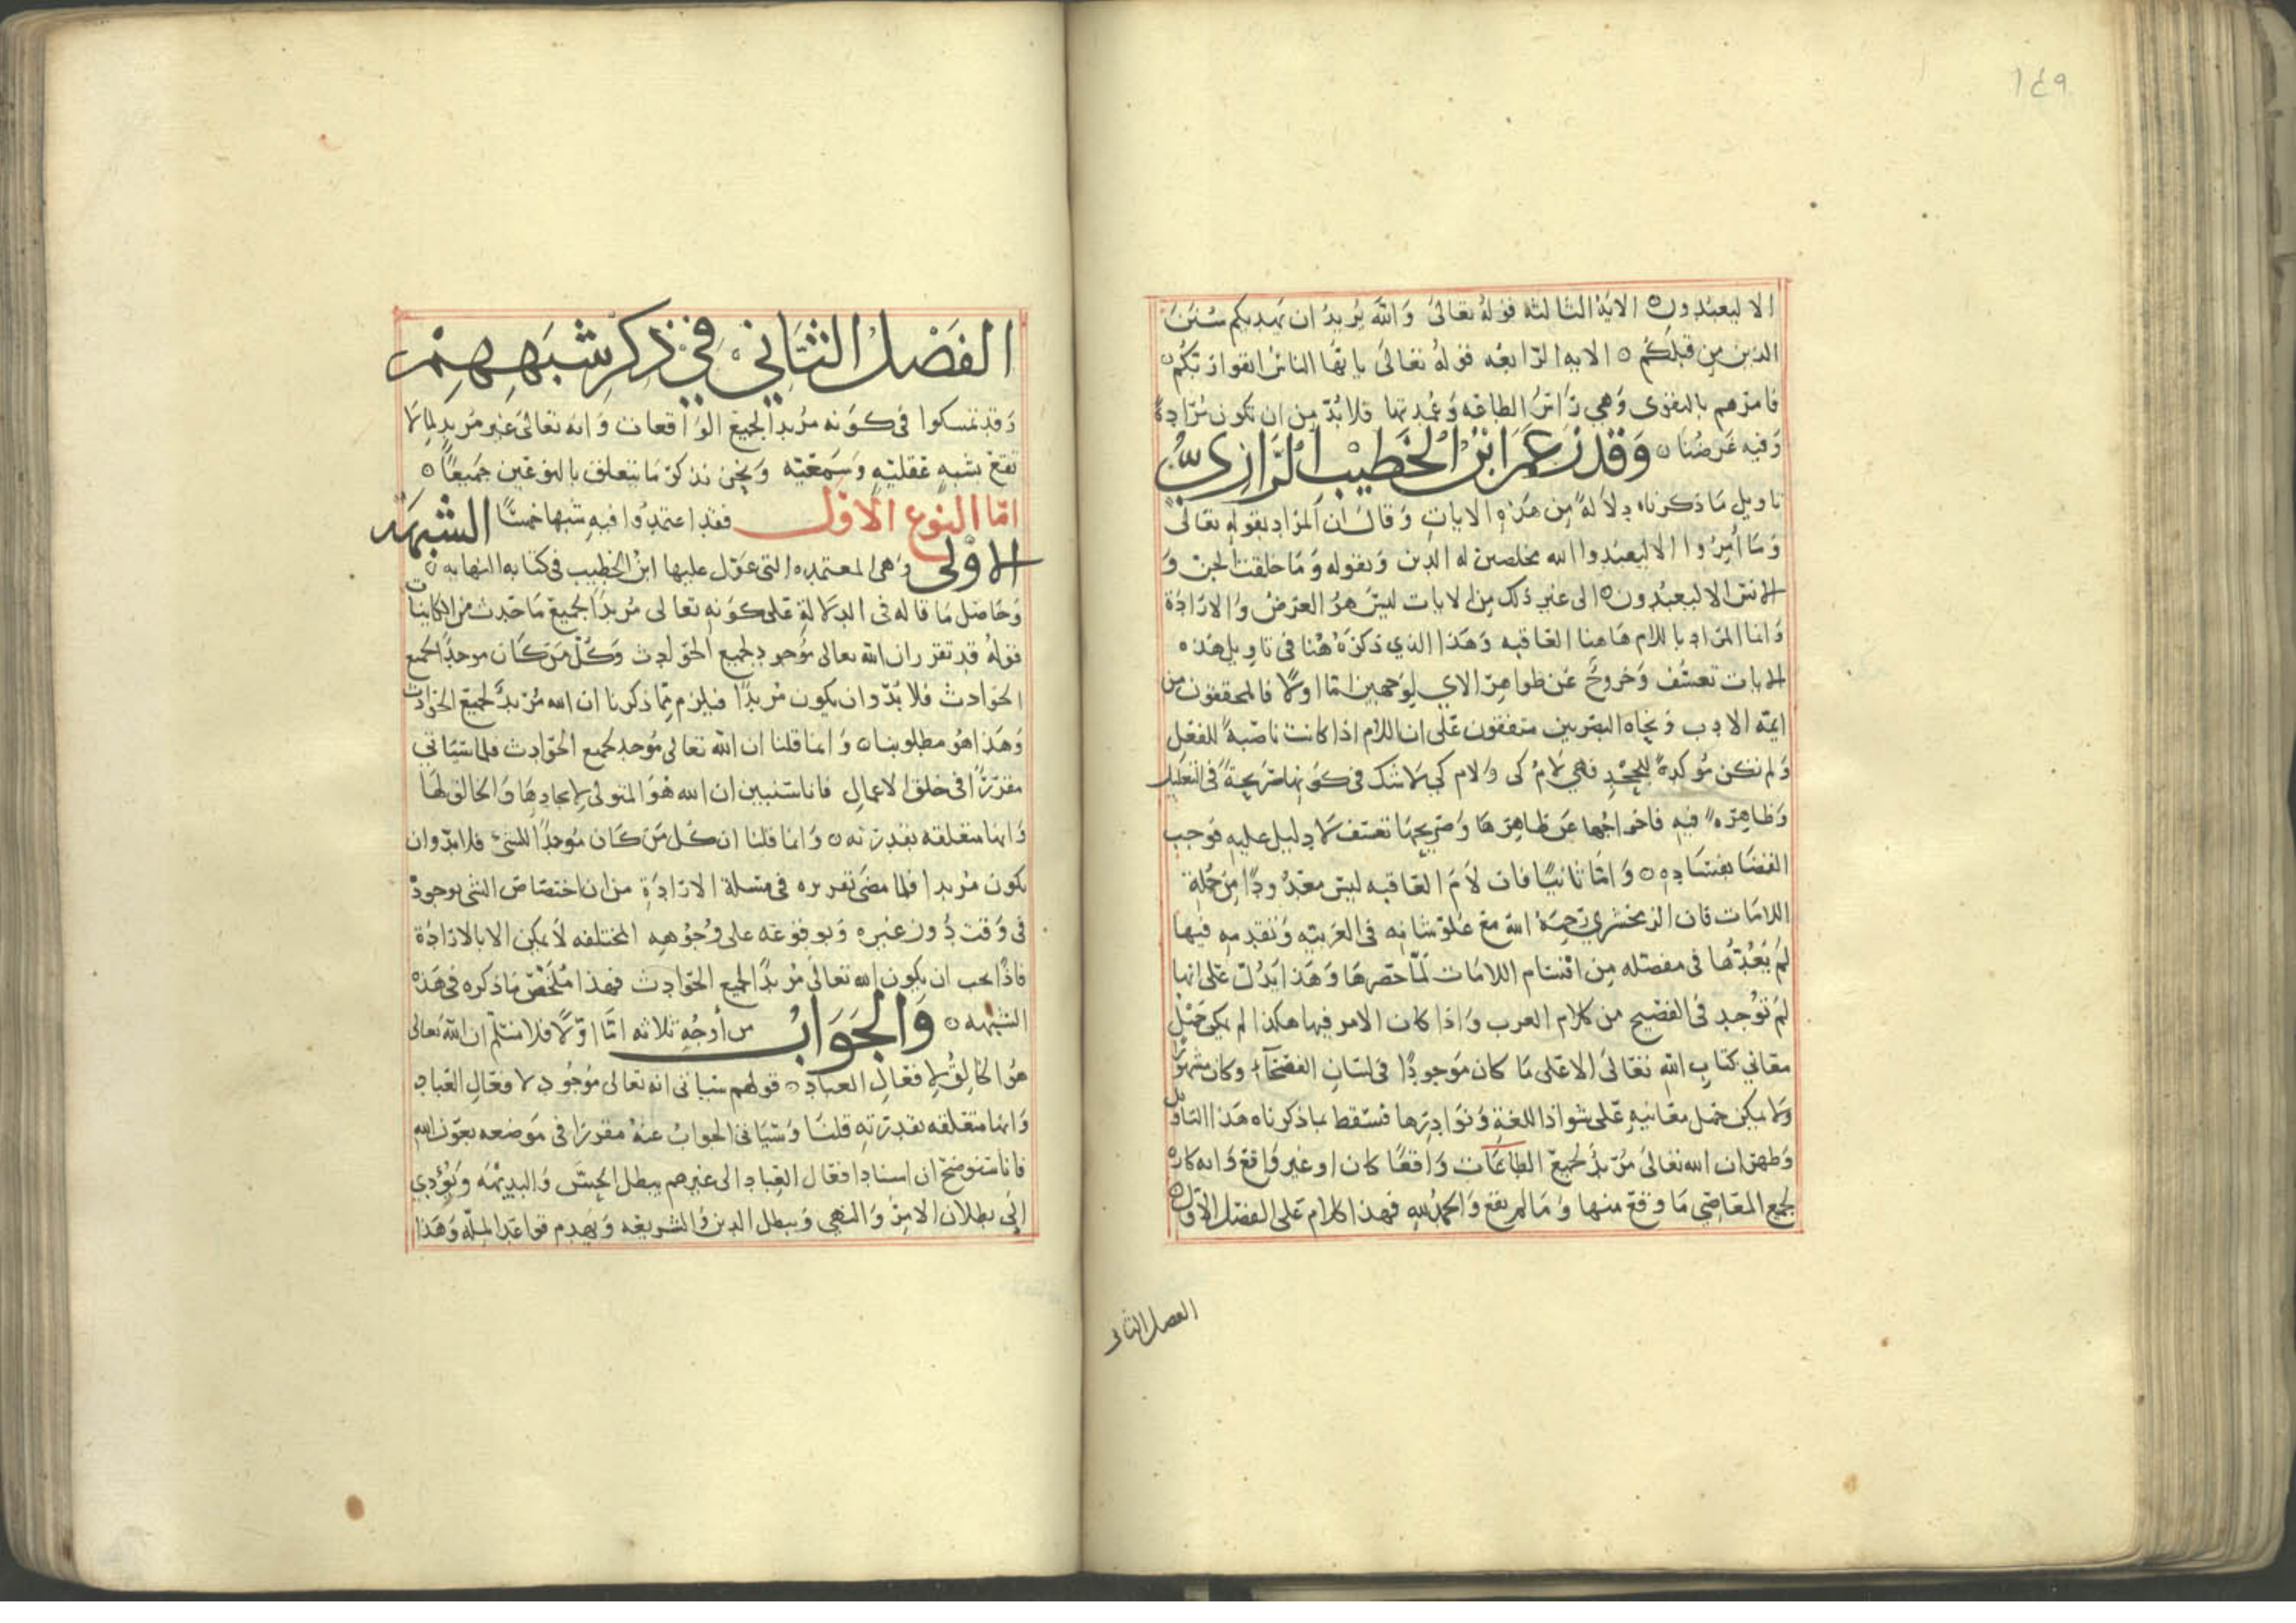 ١٤٩
الا ليعبدون ٥ الاية الثالثه قوله تعالى والله يريد ان يهديكم سنن
الذين من قبلكم ٥ الايه الرابعه قوله تعالى يا يها الناس اتقوا ربكم ٥
فامرهم بالتقوى وهي راس الطاعه وعمدتها فلا بد من ان تكون مرادة
وفيه غرضنا ٥ وقد زعم ابن الخطيب الرازي
تاويل ما ذكرناه دلالة من هذه الايات وقال ان المراد بقوله تعالى
وما أمروا الا ليعبدوا الله مخلصين له الدين وبقوله وما خلقت الجن و
الانس الا ليعبدون ٥ الى غير ذلك من الايات ليس هو الغرض والارادة
وانما المراد باللام هاهنا العاقبه وهذا الذي ذكره هنا في تاويل هذه
الايات تعسف وخروج عن ظواهر الاي لوجهين اما اولا فالمحققون من
ايمة الادب ونحاه البصريين متفقون على ان اللام اذا كانت ناصبة للفعل
ولم تكن موكدة للجحد فهي لام كى ولام كي لا شك في كونها صريحة في التعليل
وظاهرة فيه فاخراجها عن ظاهرها وصريحها تعسف لا دليل عليه فوجب
القضا بفساده ٥ واما ثانيا فان لام العاقبه ليس معدودا من جملة
اللامات فان الزمخشري رحمة الله مع علو شانه في العربيه وتقدمه فيها
لم يعدها في مفصله من اقسام اللامات لما حصرها وهذا يدل على انها
لم توجد في الفصيح من كلام العرب واذا كان الامر فيها هكذا لم يكن حمل
معاني كتاب الله تعالى الا على ما كان موجودا في لسان الفصحآء وكان مشهورا
ولا يمكن حمل معانيه على شواذ اللغة ونوادرها فسقط بما ذكرناه هذا التاويل
وظهر ان الله تعالى مريد لجميع الطاعات واقعا كان او غير واقع وانه كاره
لجميع المعاصي ما وقع منها وما لم يقع والحمد لله فهذا كلام على الفصل الاول ٥
الفصل الثاني
الفصل الثاني في ذكر شبههم
وقد تمسكوا في كونه مريدا لجميع الواقعات وانه تعالى غير مريد لما لا
تقع بشبه عقليه وسمعيه ونحن نذكر ما يتعلق بالنوعين جميعا ٥
اما النوع الاول فقد اعتمدوا فيه شبها خمسا الشبهه
الاولى وهي المعتمده التي عول عليها ابن الخطيب في كتابه النهايه ٥
وحاصل ما قاله في الدلالة على كونه تعالى مريدا لجميع ما حدث من الكاينات
قوله قد تقرر ان الله تعالى موجد لجميع الحوادث وكل من كان موجدا لجميع
الحوادث فلا بد وان يكون مريدا فيلزم مما ذكرنا ان الله مريد لجميع الحوادث
وهذا هو مطلوبنا ٥ وانما قلنا ان الله تعالى موجد لجميع الحوادث فلما سياتي
مقررا في خلق الاعمال فانا سنبين ان الله هو المتولي لايجادها والخالق لها
وانها متعلقه بقدرته ٥ وانما قلنا ان كل من كان موجدا للشيء فلا بد وان
يكون مريدا فلما مضى تقريره في مسلة الارادة من ان اختصاص الشي بوجوده
في وقت دون غيره وبوقوعه على وجوهه المختلفه لا يمكن الا بالارادة
فاذا يجب ان يكون الله تعالى مريدا لجميع الحوادث فهذا ملخص ما ذكره في هذه
الشبهه ٥ والجواب من أوجه ثلاثه اما اولا فلا نسلم ان الله تعالى
هو الخالق لافعال العباد ٥ قولهم سياتي انه تعالى موجود لافعال العباد
وانها متعلقه بقدرته قلنا وسياتي الجواب عنه مقررا في موضعه بعون الله
فانا سنوضح ان اسناد افعال العباد الى غيرهم يبطل الحس والبديهه ويؤدي
الى بطلان الامر والنهي ويبطل الدين والشريعه ويهدم قواعد الملة وهذا